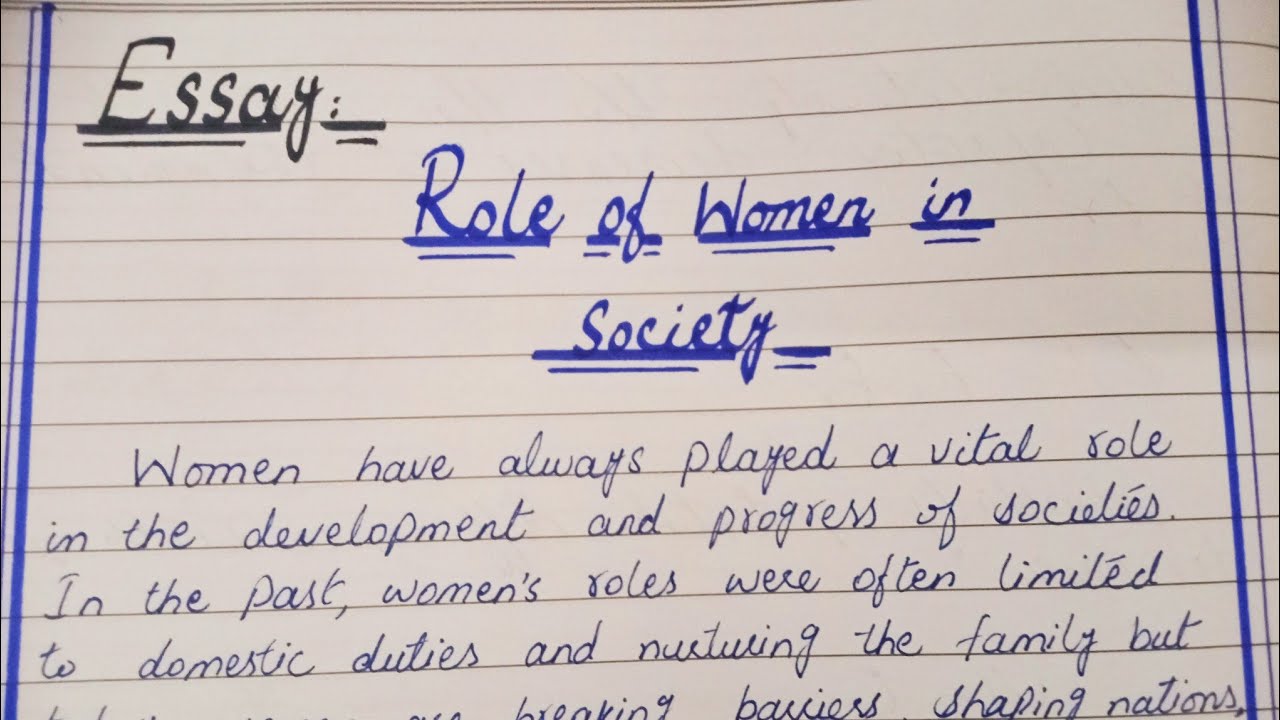 Essay:
Role of Women in
Society
Women have always played a vital role
in the development and progress of societies.
In the past, women's roles were often limited
to domestic duties and nurturing the family but
breaking barriers, shaping nations,